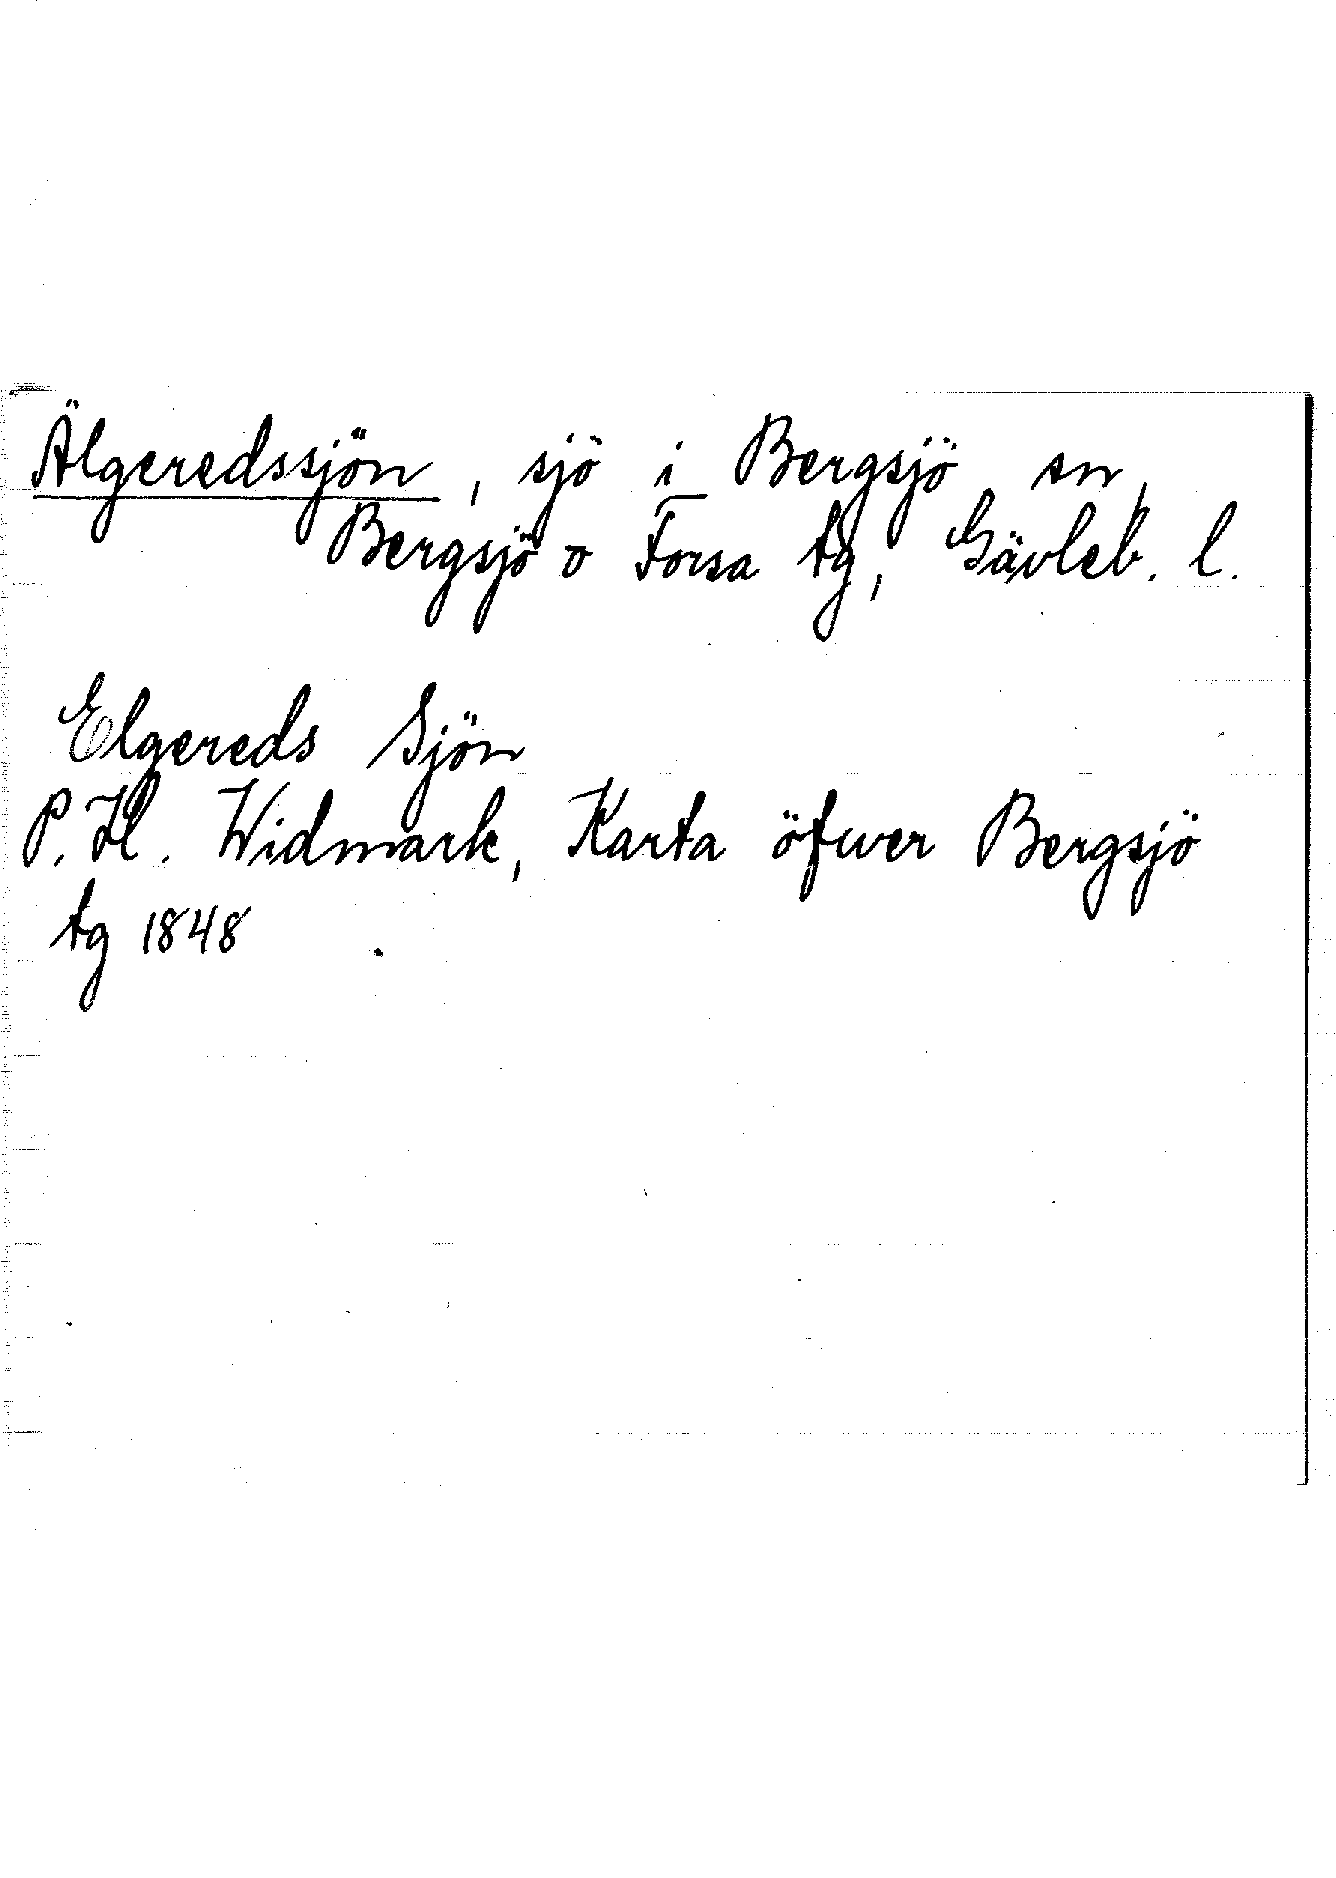 Älgeredssjön, sjö i Bergsjö sn,
Bergsjö o Forsa tg, Gävleb. l.
Elgereds Sjön
P. H. Widmark, Karta öfwer Bergsjö
tg 1848